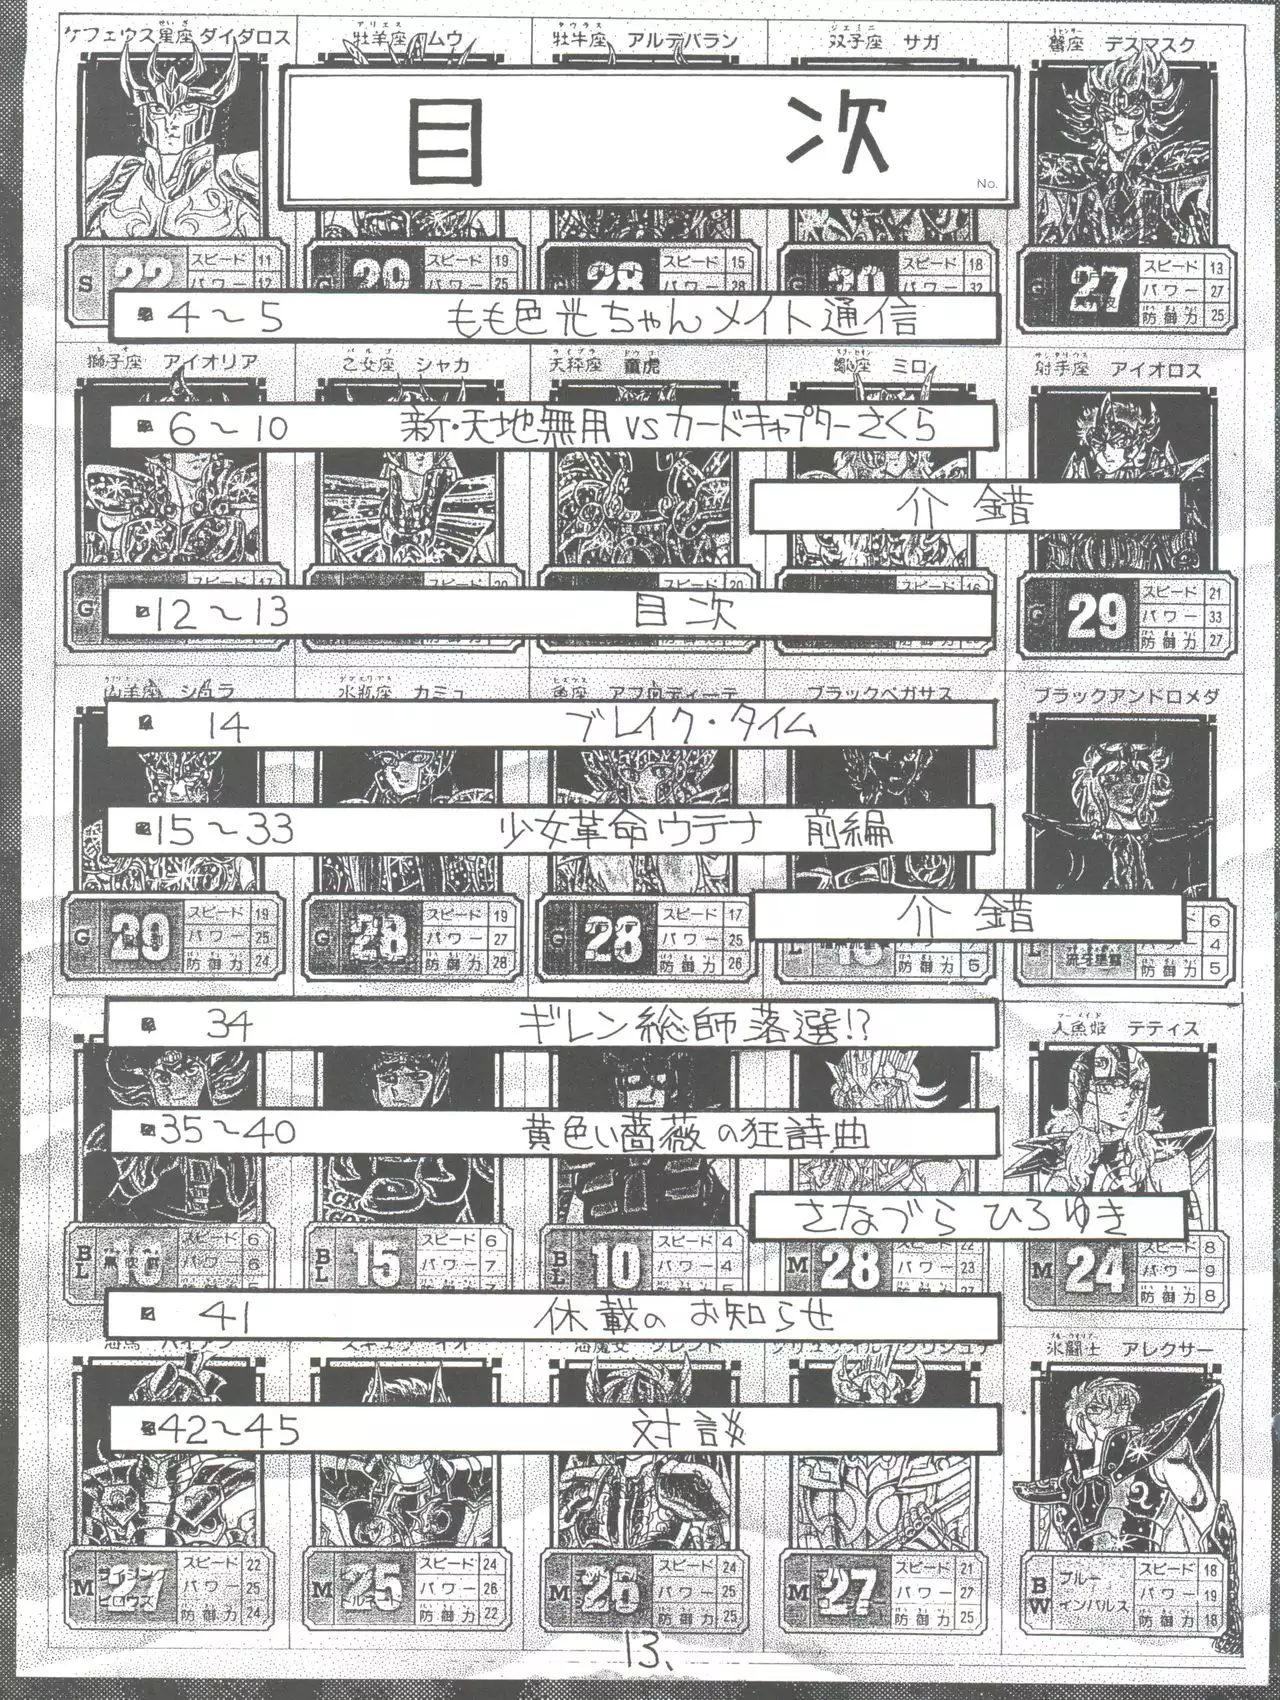 ケフェウス星座 ダイダロス
牡羊座 ムウ
牡牛座 アルデバラン
双子座 サガ
蟹座 デスマスク
目 次
No.
S 22 スピード 11
G スピード 19
G 28 スピード 15
G スピード 18
27 スピード 13
パワー 27
防御力 25
4〜5 もも色光ちゃんメイト通信
獅子座 アイオリア
乙女座 シャカ
天秤座 童虎
ミロ
射手座 アイオロス
6〜10 新・天地無用 vs カードキャプターさくら
介 錯
G スピード 17
スピード 20
スピード 20
スピード 16
G 29 スピード 21
パワー 33
防御力 27
12〜13 目次
山羊座 シュラ
水瓶座 カミュ
魚座 アフロディーテ
ブラックペガサス
ブラックアンドロメダ
14 ブレイク・タイム
15〜33 少女革命ウテナ 前編
介 錯
G 29 スピード 19
パワー 25
防御力 24
G 28 スピード 19
パワー 27
防御力 28
G 28 スピード 17
パワー 25
防御力 26
防御力 5
6
パワー 4
防御力 5
34 ギレン総師落選!?
人魚姫 テティス
35〜40 黄色い薔薇の狂詩曲
さなづら ひろゆき
BL スピード 6
パワー 6
BL 15 スピード 6
パワー 7
BL 10 スピード 4
パワー 4
M 28 スピード 22
パワー 23
M 24 スピード 8
パワー 9
防御力 8
41 休載のお知らせ
氷闘士 アレクサー
42〜45 対談
M 27 ライジング ビロウズ スピード 22
パワー 25
防御力 24
M 25 スピード 24
パワー 26
防御力 22
M 26 スピード 24
パワー 25
防御力 25
M 27 スピード 21
パワー 27
防御力 25
BW ブルー インパルス スピード 18
パワー 19
防御力 18
13.